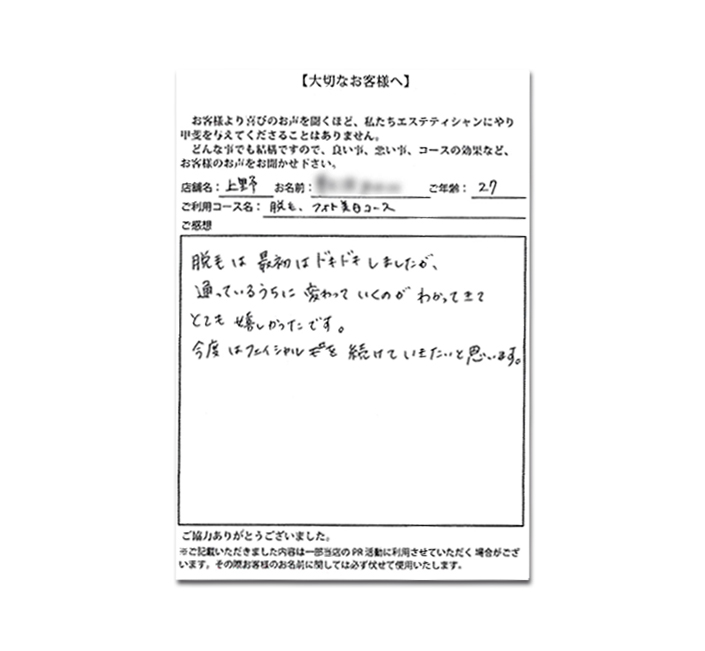 【大切なお客様へ】
お客様より喜びのお声を聞くほど、私たちエステティシャンにやり
甲斐を与えてくださることはありません。
どんな事でも結構ですので、良い事、悪い事、コースの効果など、
お客様のお声をお聞かせ下さい。
店舗名：上野 お名前： ご年齢：27
ご利用コース名：脱毛、フォト美白コース
ご感想
脱毛は最初はドキドキしましたが、
通っているうちに変わっていくのがわかってきて
とても嬉しかったです。
今度はフェイシャルを続けていきたいと思います。
ご協力ありがとうございました。
※ご記載いただきました内容は一部当店のPR活動に利用させていただく場合がござ
います。その際お客様のお名前に関しては必ず伏せて使用いたします。